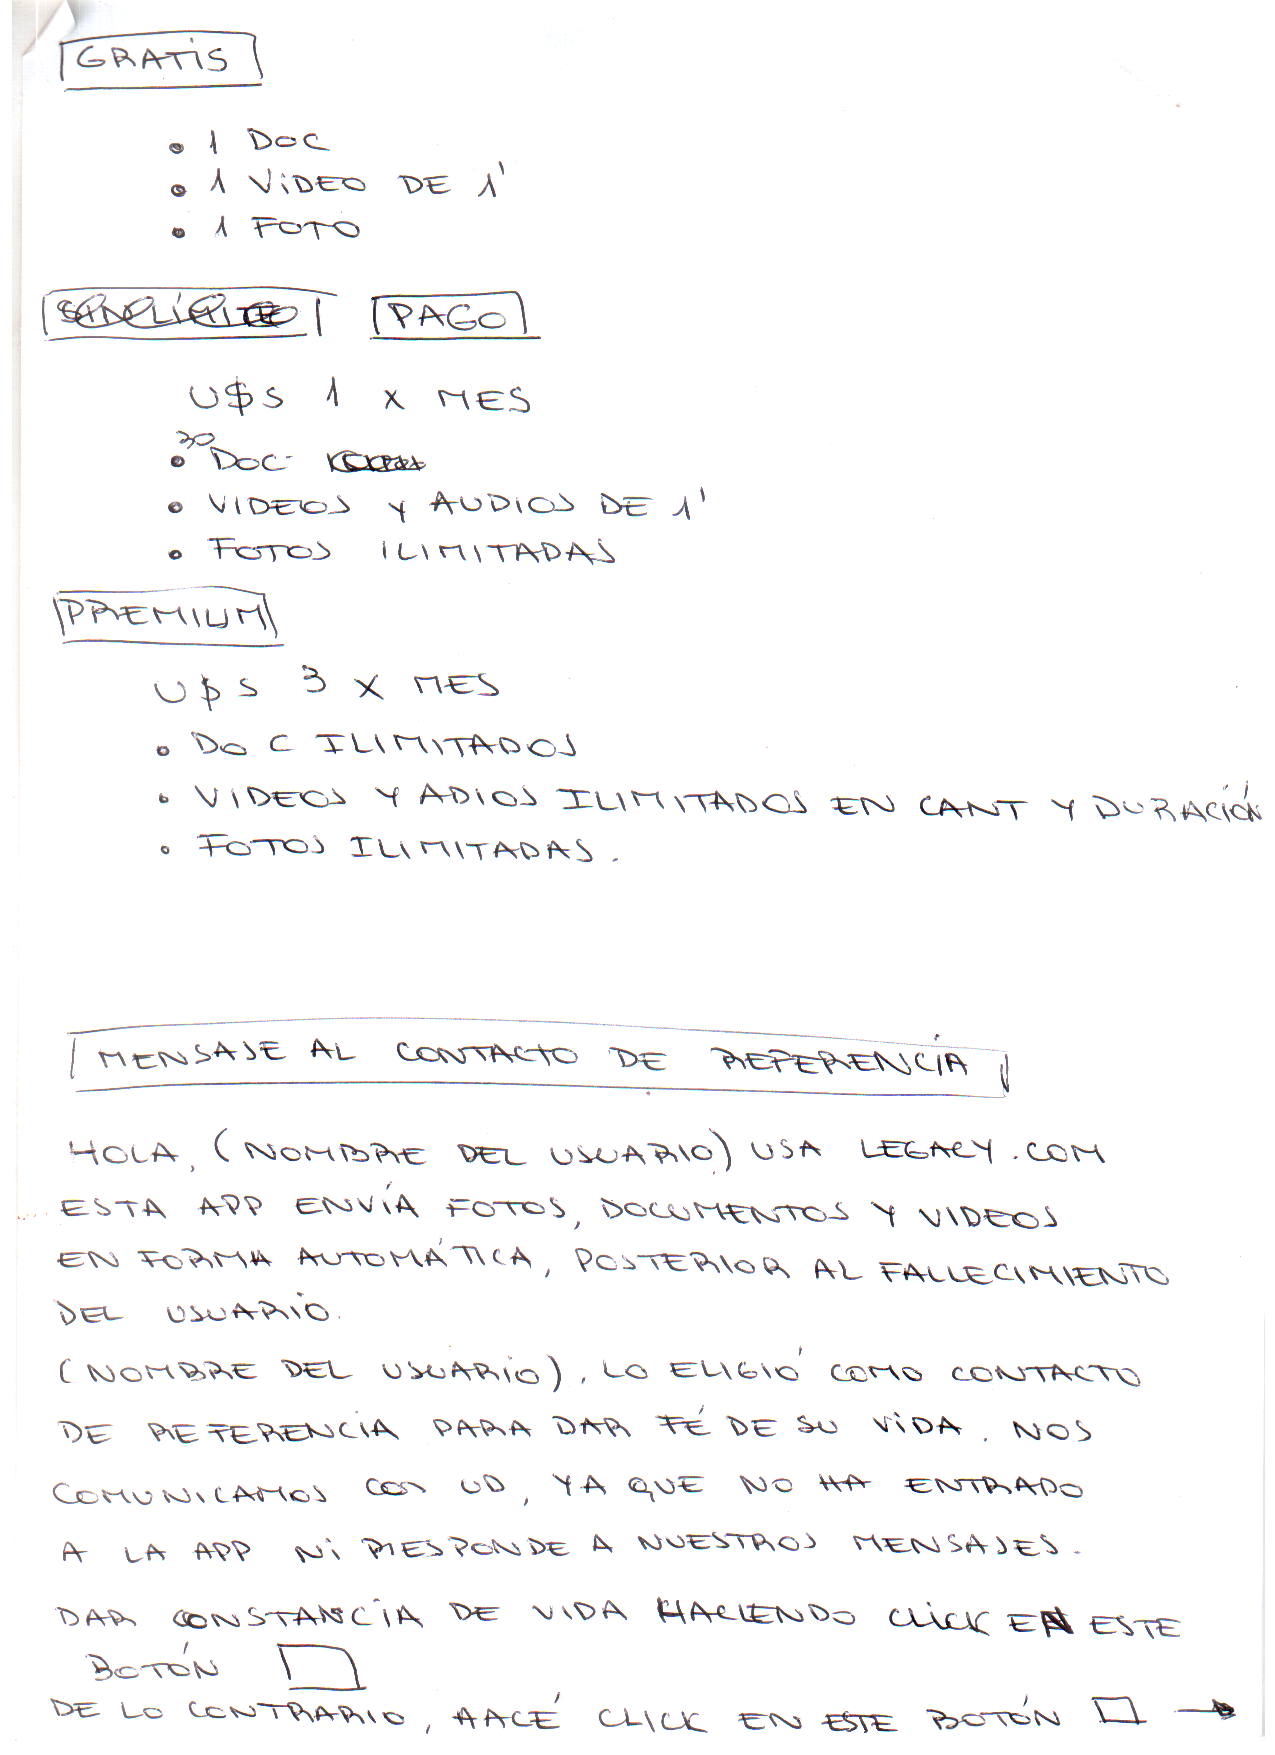 GRATIS
• 1 DOC
• 1 VIDEO DE 1'
• 1 FOTO
PAGO
U$S 1 X MES
30
• DOC
• VIDEOS Y AUDIOS DE 1'
• FOTOS ILIMITADAS
PREMIUM
U$S 3 X MES
• DOC ILIMITADOS
• VIDEOS Y ADIOS ILIMITADOS EN CANT Y DURACIÓN
• FOTOS ILIMITADAS.
MENSAJE AL CONTACTO DE REFERENCIA
HOLA, (NOMBRE DEL USUARIO) USA LEGACY.COM
ESTA APP ENVÍA FOTOS, DOCUMENTOS Y VIDEOS
EN FORMA AUTOMÁTICA, POSTERIOR AL FALLECIMIENTO
DEL USUARIO.
(NOMBRE DEL USUARIO), LO ELIGIÓ COMO CONTACTO
DE REFERENCIA PARA DAR FÉ DE SU VIDA. NOS
COMUNICAMOS CON UD, YA QUE NO HA ENTRADO
A LA APP NI RESPONDE A NUESTROS MENSAJES.
DAR CONSTANCIA DE VIDA HACIENDO CLICK EN ESTE
BOTÓN
DE LO CONTRARIO, HACÉ CLICK EN ESTE BOTÓN →